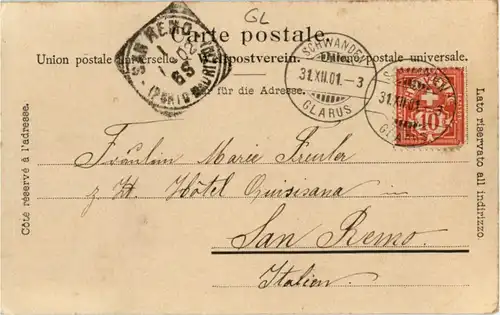 GL
Carte postale.
Union postale universelle. Weltpostverein. Unione postale universale.
Nur für die Adresse.
SAN REMO
1
1 02
6S
(PORTO MAURIZIO)
SCHWANDEN
31.XII.01.–3
GLARUS
SCHWANDEN
31.XII.01.
GLARUS
10
Côté réservé à l'adresse.
Lato riservato all indirizzo.
Fräulein Marie Freuler
z. Zt. Hôtel Quisisana
San Remo.
Italien.